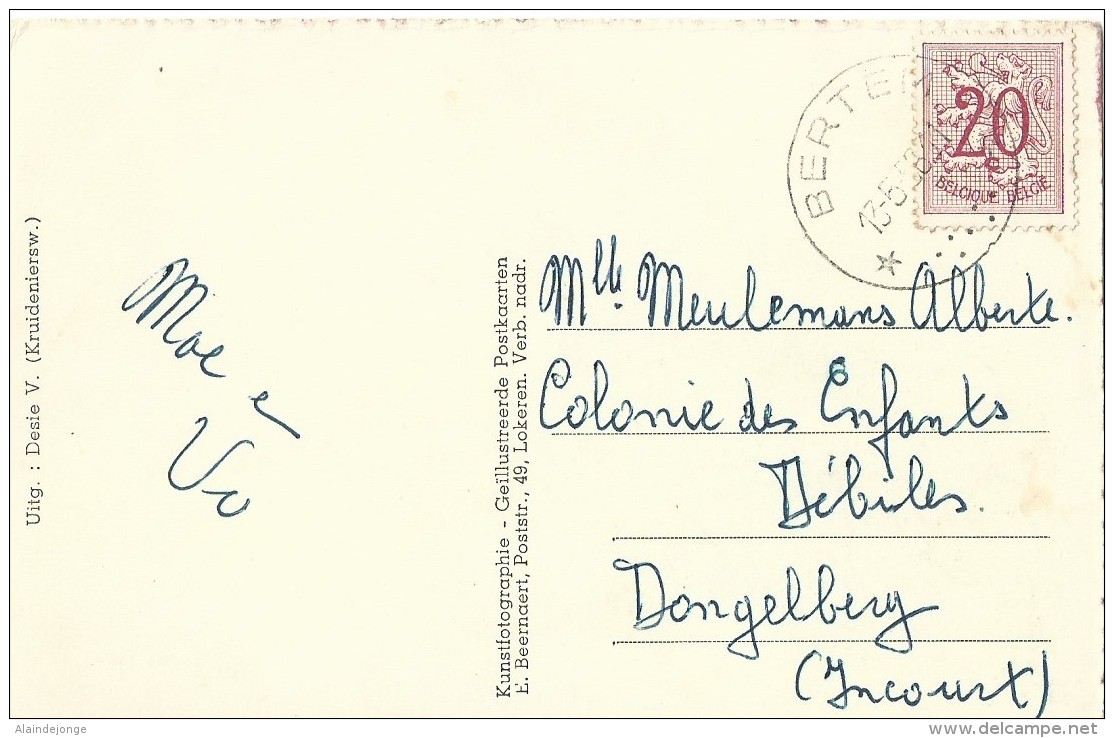 Uitg. : Desie V. (Kruideniersw.)
Moe e
Vo
Kunstfotographie - Geïllustreerde Postkaarten
E. Beernaert, Poststr., 49, Lokeren. Verb. nadr.
BERTE
13-5
20
BELGIQUE BELGIË
Mlle. Meulemans Alberte.
Colonie des Enfants
Débiles.
Dongelberg
(Incourt)
Alaindejonge
delcampe.net